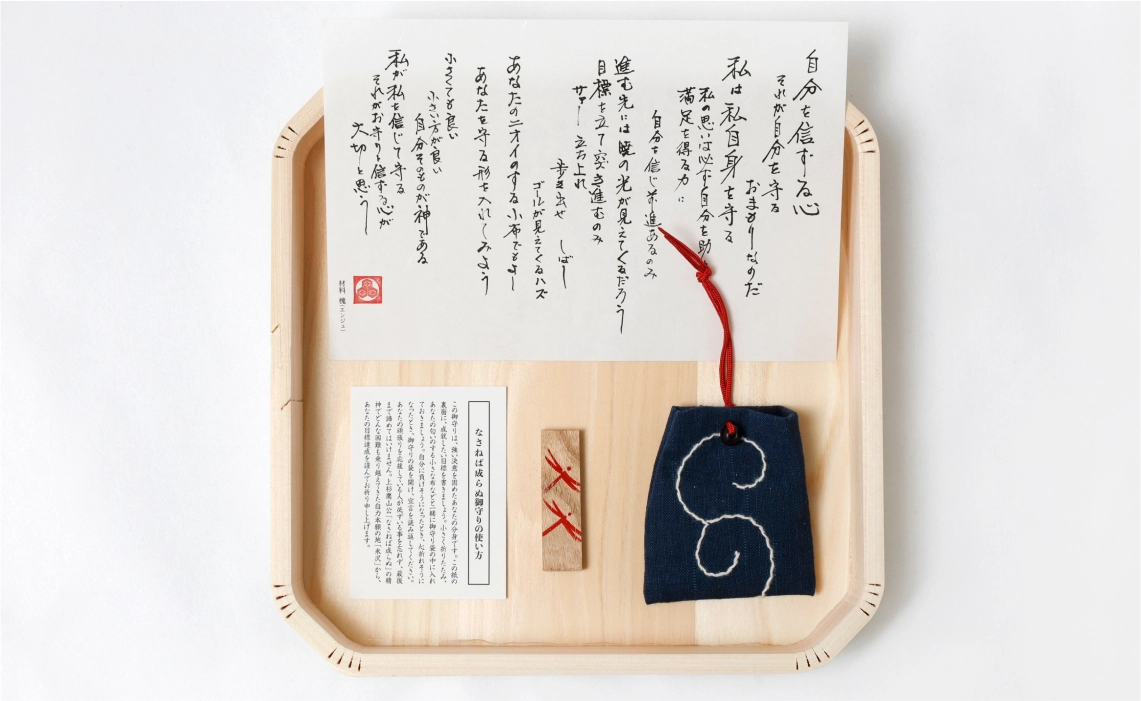 自分を信ずる心
それが自分を守る
おまもりなのだ
私は私自身を守る
私の思いは必ず自分を助
満足を得る力に
自分を信じ前進あるのみ
進む先には暁の光が見えてくるだろう
目標を立て突き進むのみ
サァー 立ち上れ
歩き出せ しばし
ゴールが見えてくるハズ
あなたのニオイのする小布でもよし
あなたを守る形を入れてみよう
小さくても良い
小さい方が良い
自分そのものが神である
私が私を信じて守る
それがお守りと信ずる心が
大切と思う
材料 槐(エンジュ)
なさねば成らぬ御守りの使い方
この御守りは、強い決意を固めたあなたの分身です。この紙の
裏面に、成就したい目標を書きましょう。小さく折りたたみ、
あなたの匂いのする小さな布などと一緒に御守り袋の中に入れ
ておきましょう。自分に負けそうになったとき、心折れそうに
なったとき、御守りの袋を開け、宣言を読み返してください。
あなたの頑張りを応援している人が必ずいる事を忘れず、最後
まで諦めてはいけません。上杉鷹山公「なさねば成らぬ」の精
神でどんな困難も乗り越えてきた自力本願の地「米沢」から、
あなたの目標達成を謹んでお祈り申し上げます。